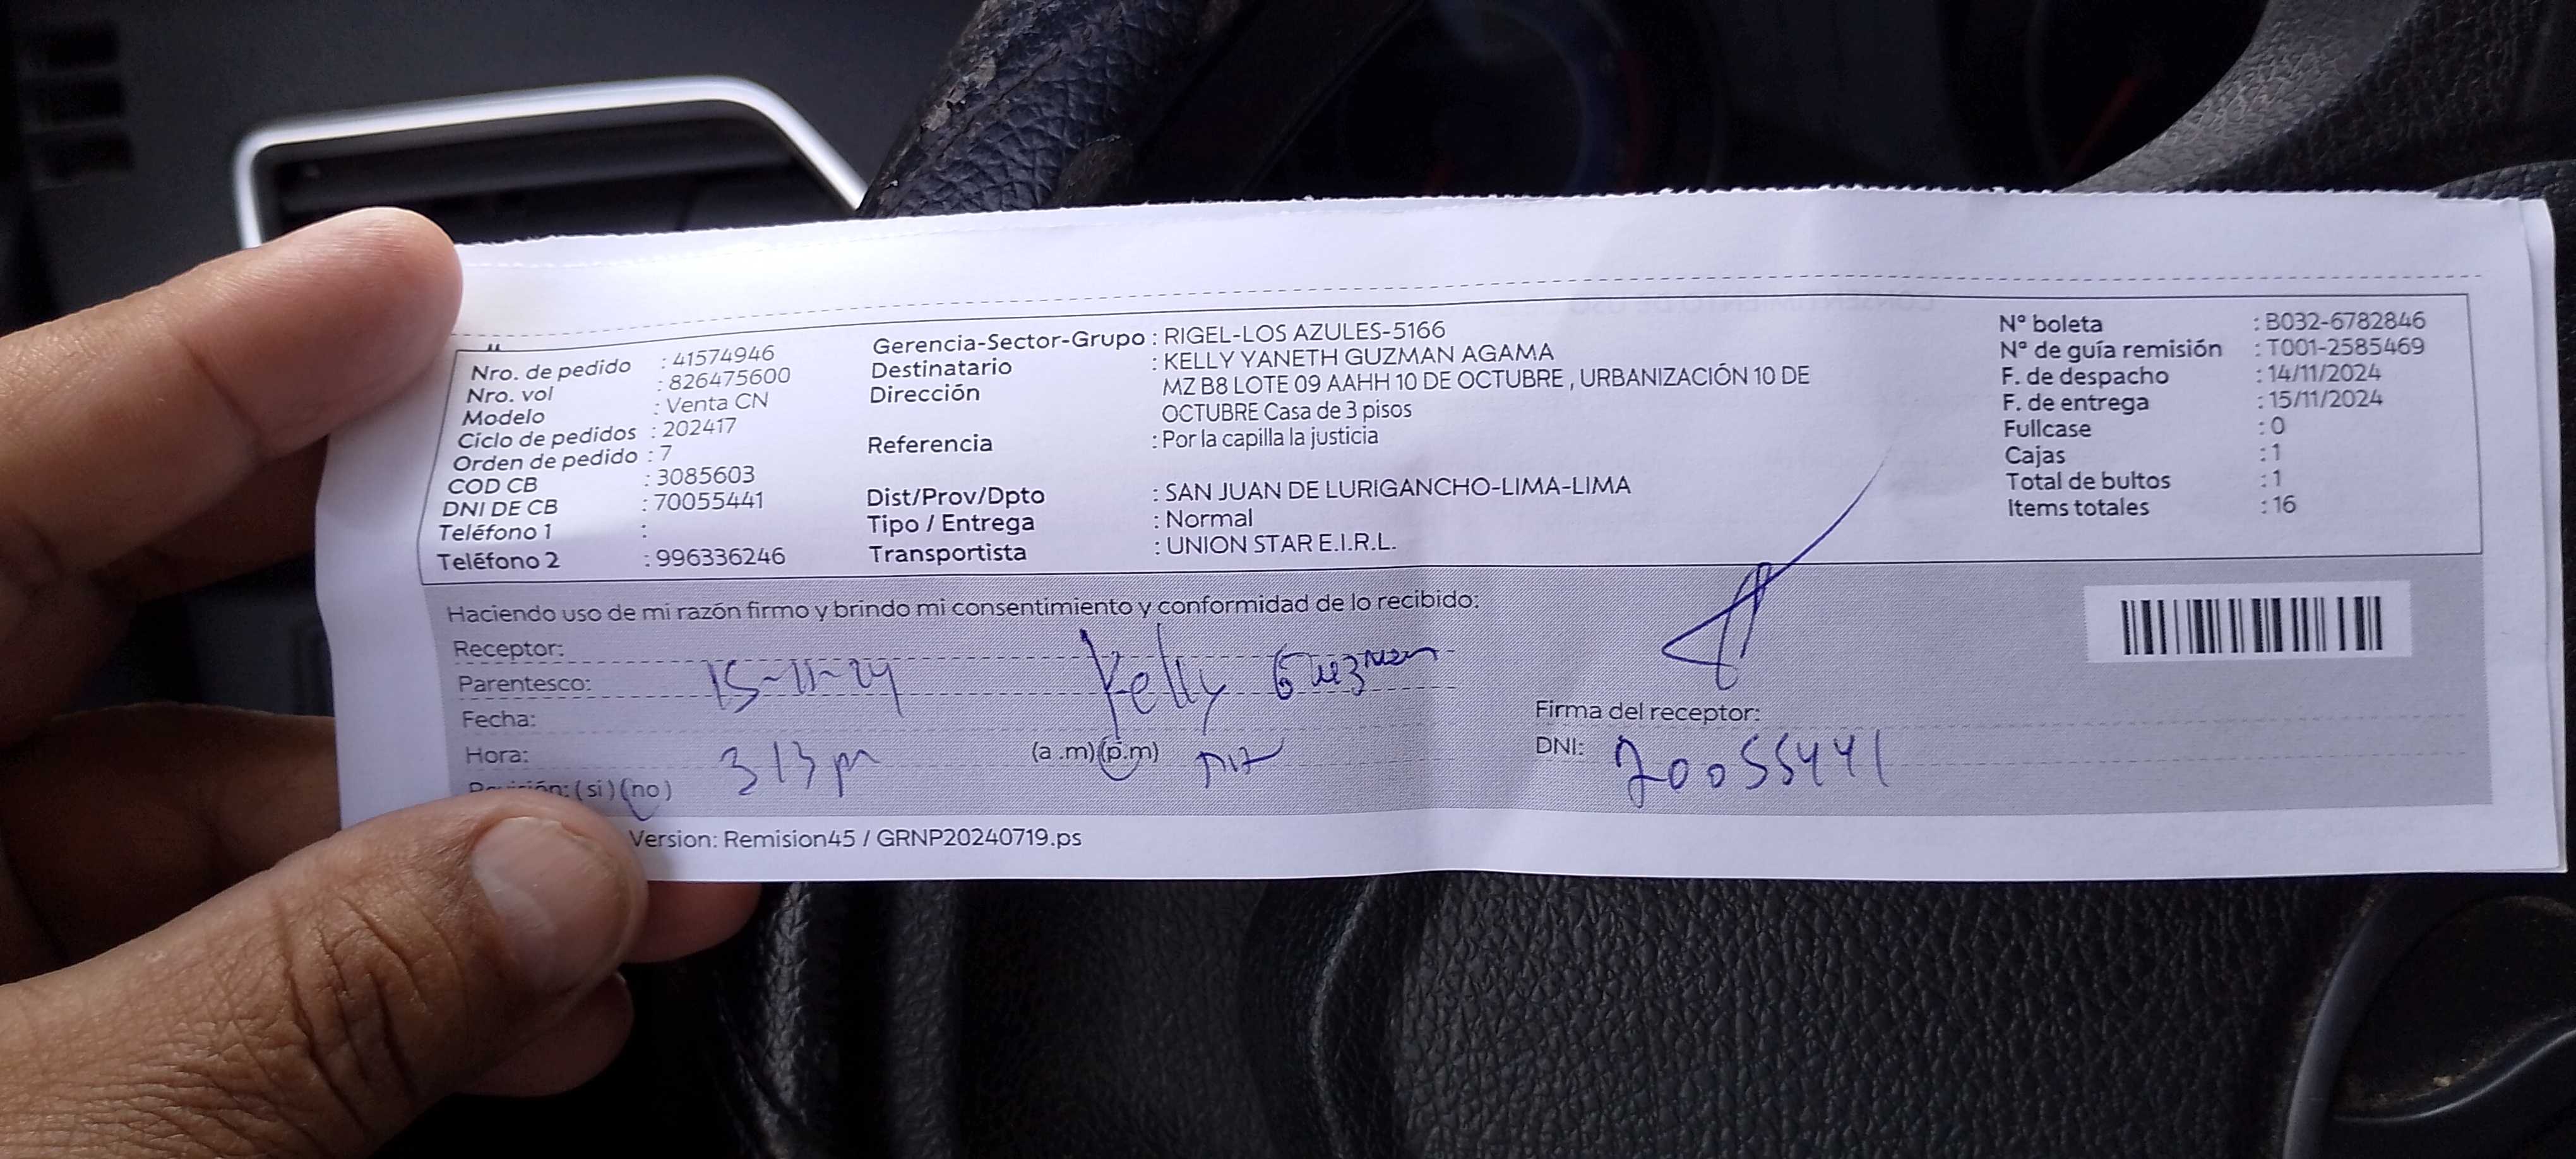 Nro. de pedido : 41574946
Nro. vol : 826475600
Modelo : Venta CN
Ciclo de pedidos : 202417
Orden de pedido : 7
COD CB : 3085603
DNI DE CB : 70055441
Teléfono 1 :
Teléfono 2 : 996336246
Gerencia-Sector-Grupo : RIGEL-LOS AZULES-5166
Destinatario : KELLY YANETH GUZMAN AGAMA
Dirección MZ B8 LOTE 09 AAHH 10 DE OCTUBRE , URBANIZACIÓN 10 DE
OCTUBRE Casa de 3 pisos
Referencia : Por la capilla la justicia
Dist/Prov/Dpto : SAN JUAN DE LURIGANCHO-LIMA-LIMA
Tipo / Entrega : Normal
Transportista : UNION STAR E.I.R.L.
N° boleta : B032-6782846
N° de guía remisión : T001-2585469
F. de despacho : 14/11/2024
F. de entrega : 15/11/2024
Fullcase : 0
Cajas : 1
Total de bultos : 1
Items totales : 16
Haciendo uso de mi razón firmo y brindo mi consentimiento y conformidad de lo recibido:
Receptor:
Parentesco: 15-11-24 Kelly Guzman
Fecha:
Firma del receptor:
Hora: 313 pm (a .m)(p.m)
DNI: 70055441
(si) (no)
Version: Remision45 / GRNP20240719.ps